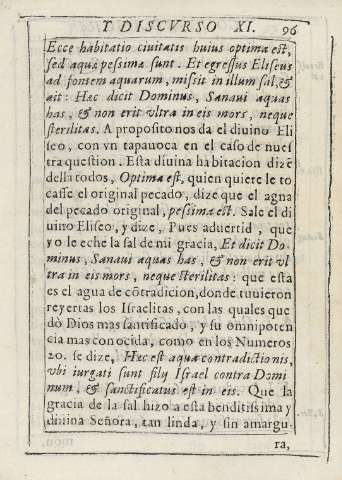 Y DISCVRSO XI. 96
Ecce habitatio ciuitatis huius optima est,
sed aquæ pessimæ sunt. Et egressus Eliseus
ad fontem aquarum, missit in illum sal, &
ait: Hæc dicit Dominus, Sanaui aquas
has, & non erit vltra in eis mors, neque
sterilitas. A proposito nos da el diuino Eli
seo, con vn tapauoca en el caso de nues
tra question. Esta diuina habitacion dizẽ
della todos, Optima est, quien quiere le to
casse el original pecado, dize que el agua
del pecado original, pessima est. Sale el di
uino Eliseo, y dize, Pues aduertid, que
yo le eche la sal de mi gracia, Et dicit Do-
minus, Sanaui aquas has, & non erit vl
tra in eis mors, neque sterilitas: que esta
es el agua de cõtradicion, donde tuuieron
reyertas los Israelitas, con las quales que
dò Dios mas santificado, y su omnipoten
cia mas conocida, como en los Numeros
20. se dize, Hæc est aqua contradictionis,
vbi iurgati sunt filij Israel contra Domi
num, & sanctificatus est in eis. Que la
gracia de la sal hizo a esta benditissima y
diuina Señora, tan linda, y sin amargu-
ra,